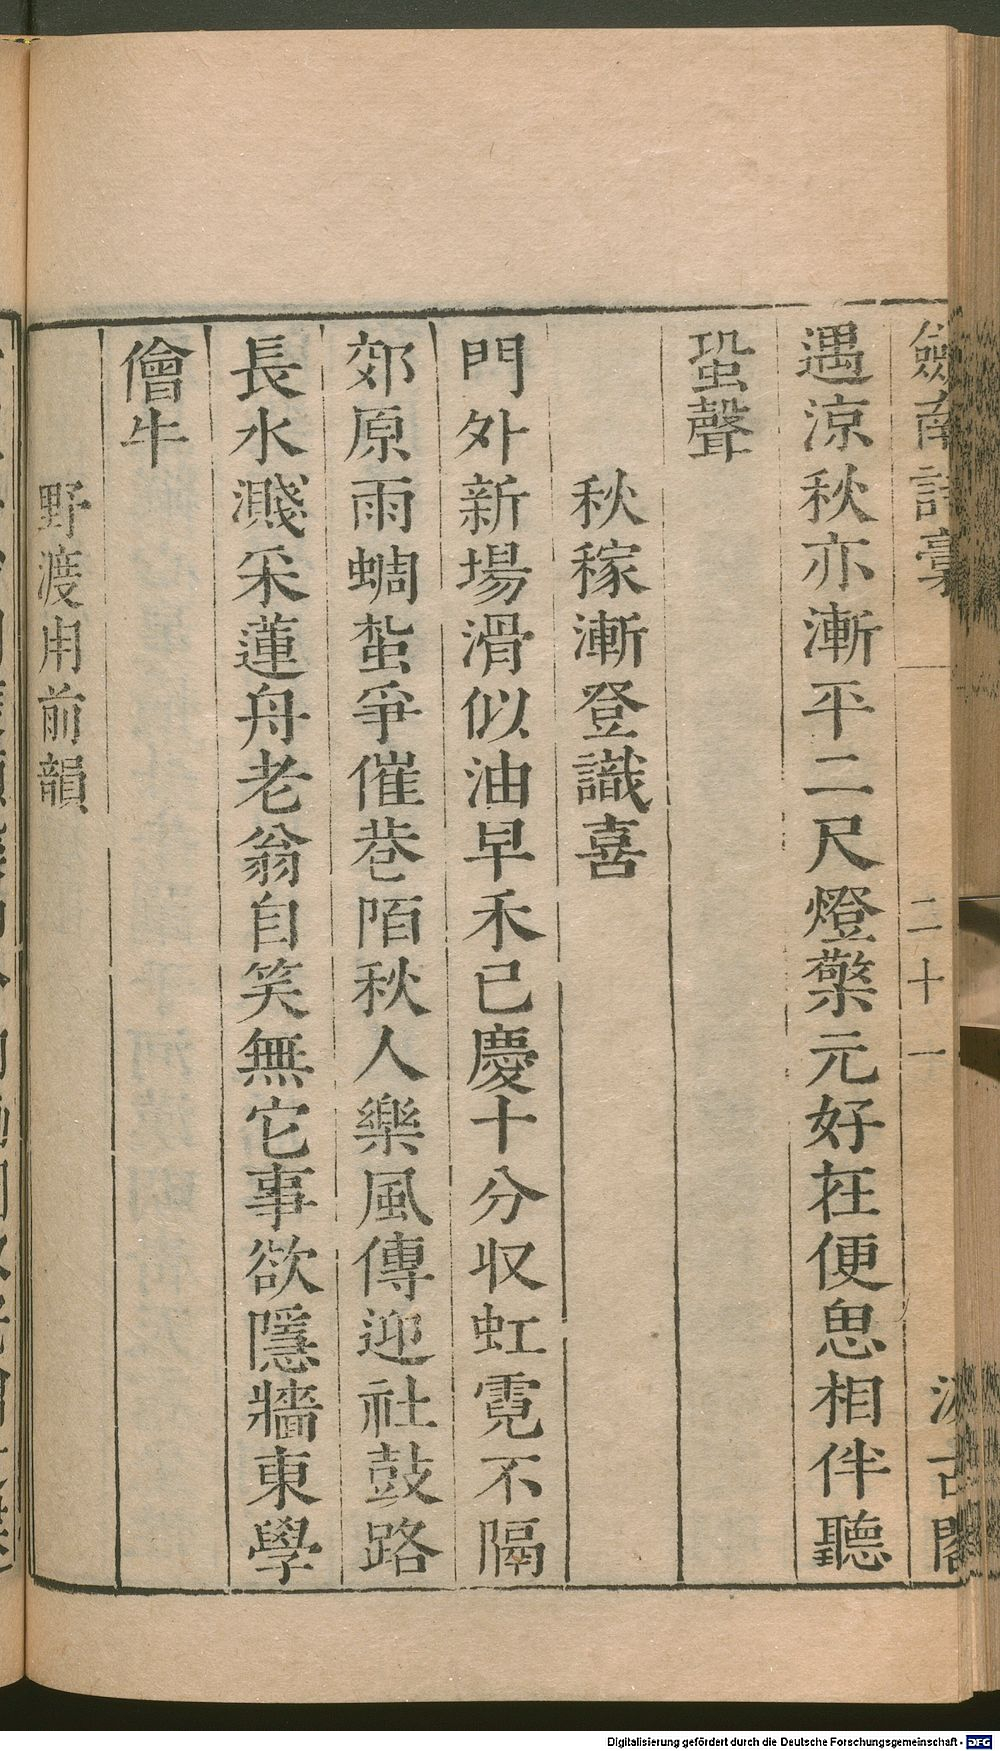 劒南詩稾
二十一
汲古閣
遇涼秋亦漸平二尺燈檠元好在便思相伴聽
蛩聲
秋稼漸登識喜
門外新場滑似油早禾已慶十分収虹霓不隔
郊原雨蜩蛰爭催巷陌秋人樂風傳迎社鼓路
長水濺采蓮舟老翁自笑無它事欲隱牆東學
儈牛
野渡用前韻
Digitalisierung gefördert durch die Deutsche Forschungsgemeinschaft - DFG